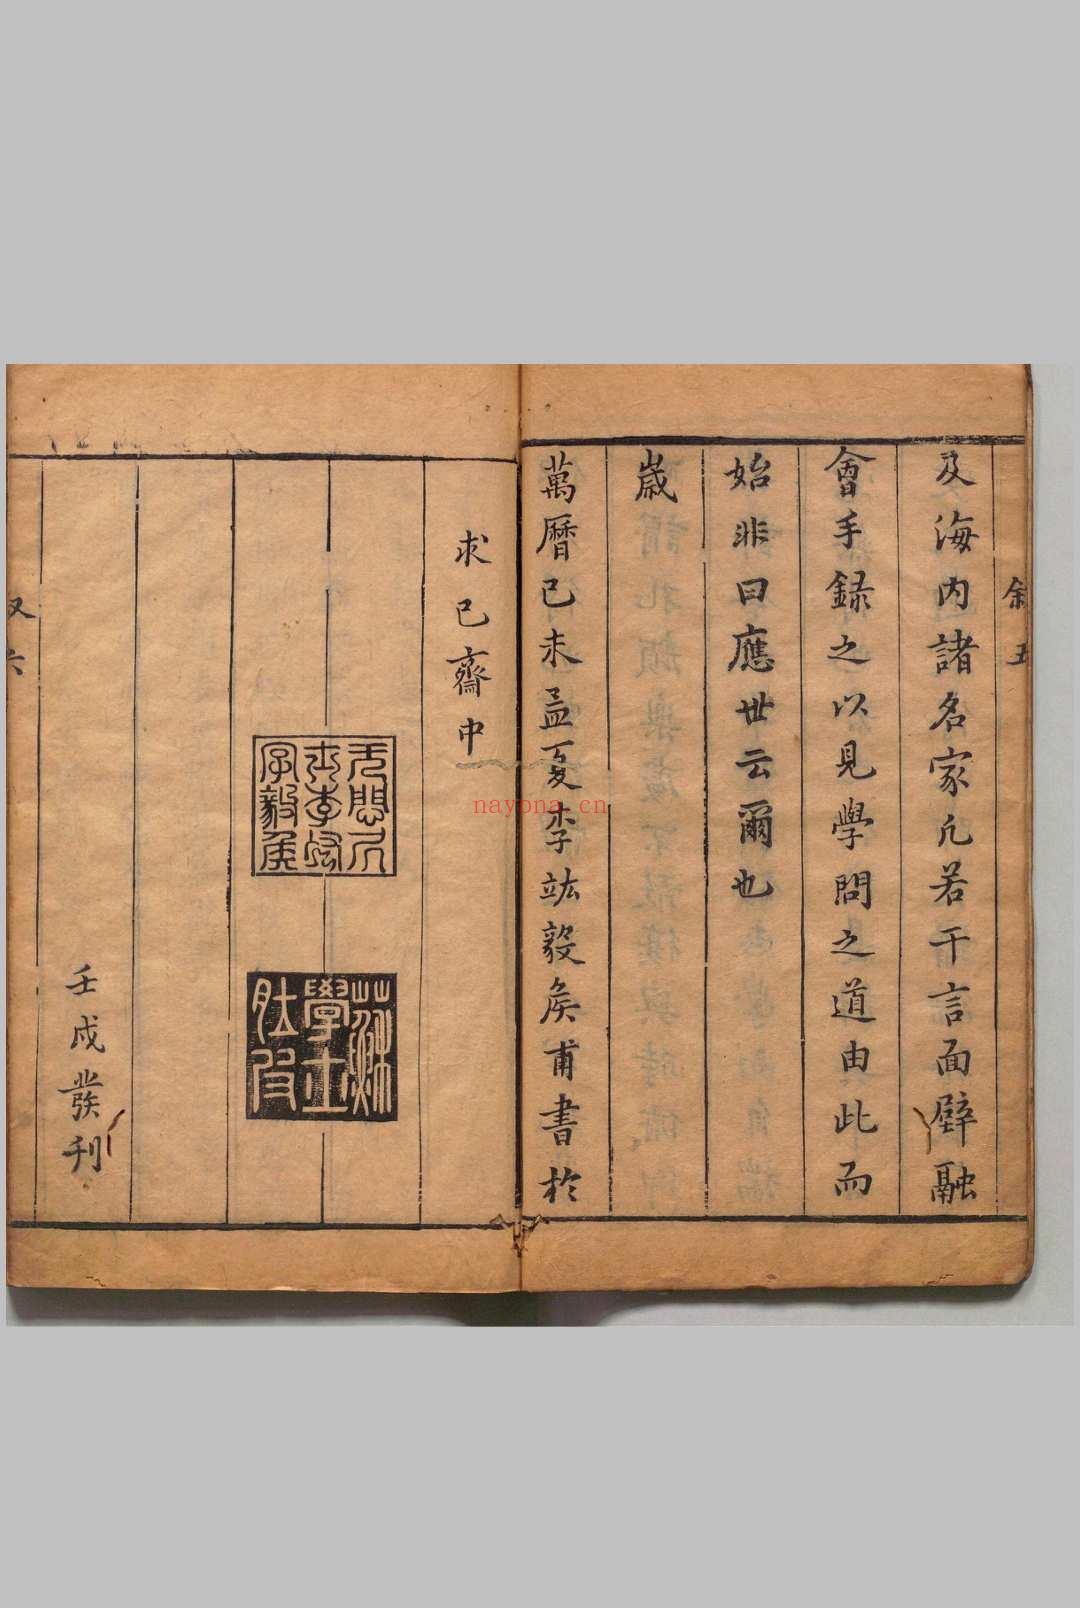 叙五
及海内諸名家凡若干言面壁融
會手録之以見學問之道由此而
始非曰應世云爾也
歳
萬曆己未孟夏李竑毅矦甫書於
求己齋中
字毅矦
蘇
學士
壬戌發刋
六
nayona.cn